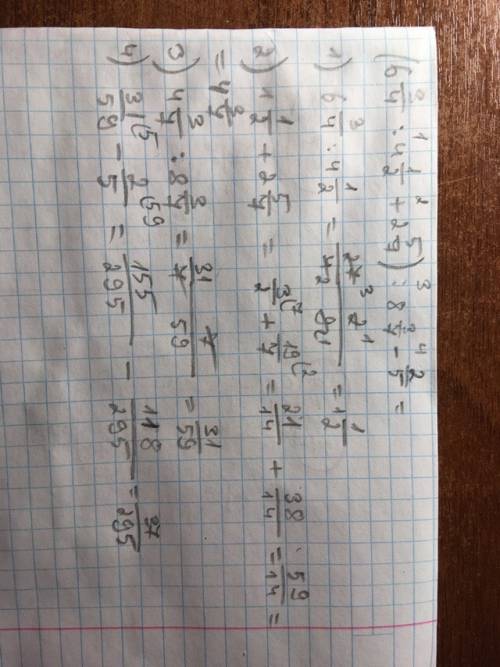 (6 3/4 : 4 1/2 + 2 5/7) : 8 3/7 - 2/5 =
1) 6 3/4 : 4 1/2 = 27 · 2 / 4 · 9 = 1 1/2
2) 1 1/2 + 2 5/7 = 3/2 + 19/7 = 21/14 + 38/14 = 59/14 =
= 4 3/7
3) 4 3/7 : 8 3/7 = 31 · 7 / 7 · 59 = 31/59
4) 31/59 - 2/5 = 155/295 - 118/295 = 37/295